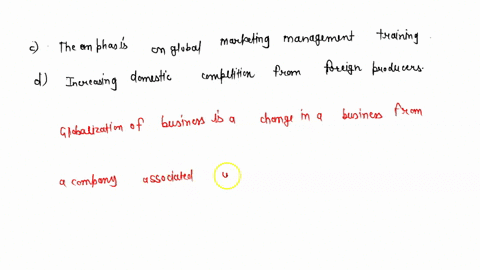 c) The emphasis on global marketing management training.
d) Increasing domestic competition from foreign producers.
Globalization of business is a change in a business from
a company associated w